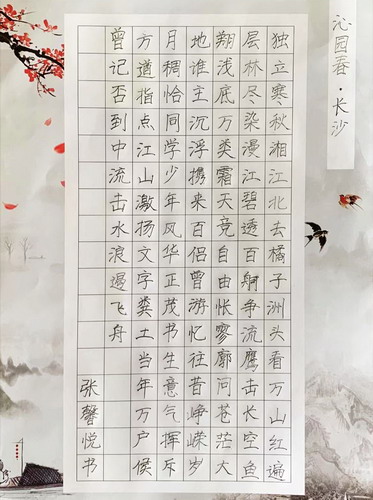 沁园春·长沙
独立寒秋湘江北去橘子洲头看万山红遍
层林尽染漫江碧透百舸争流鹰击长空鱼
翔浅底万类霜天竞自由怅寥廓问苍茫大
地谁主沉浮携来百侣曾游忆往昔峥嵘岁
月稠恰同学少年风华正茂书生意气挥斥
方遒指点江山激扬文字粪土当年万户侯
曾记否到中流击水浪遏飞舟
张馨悦书